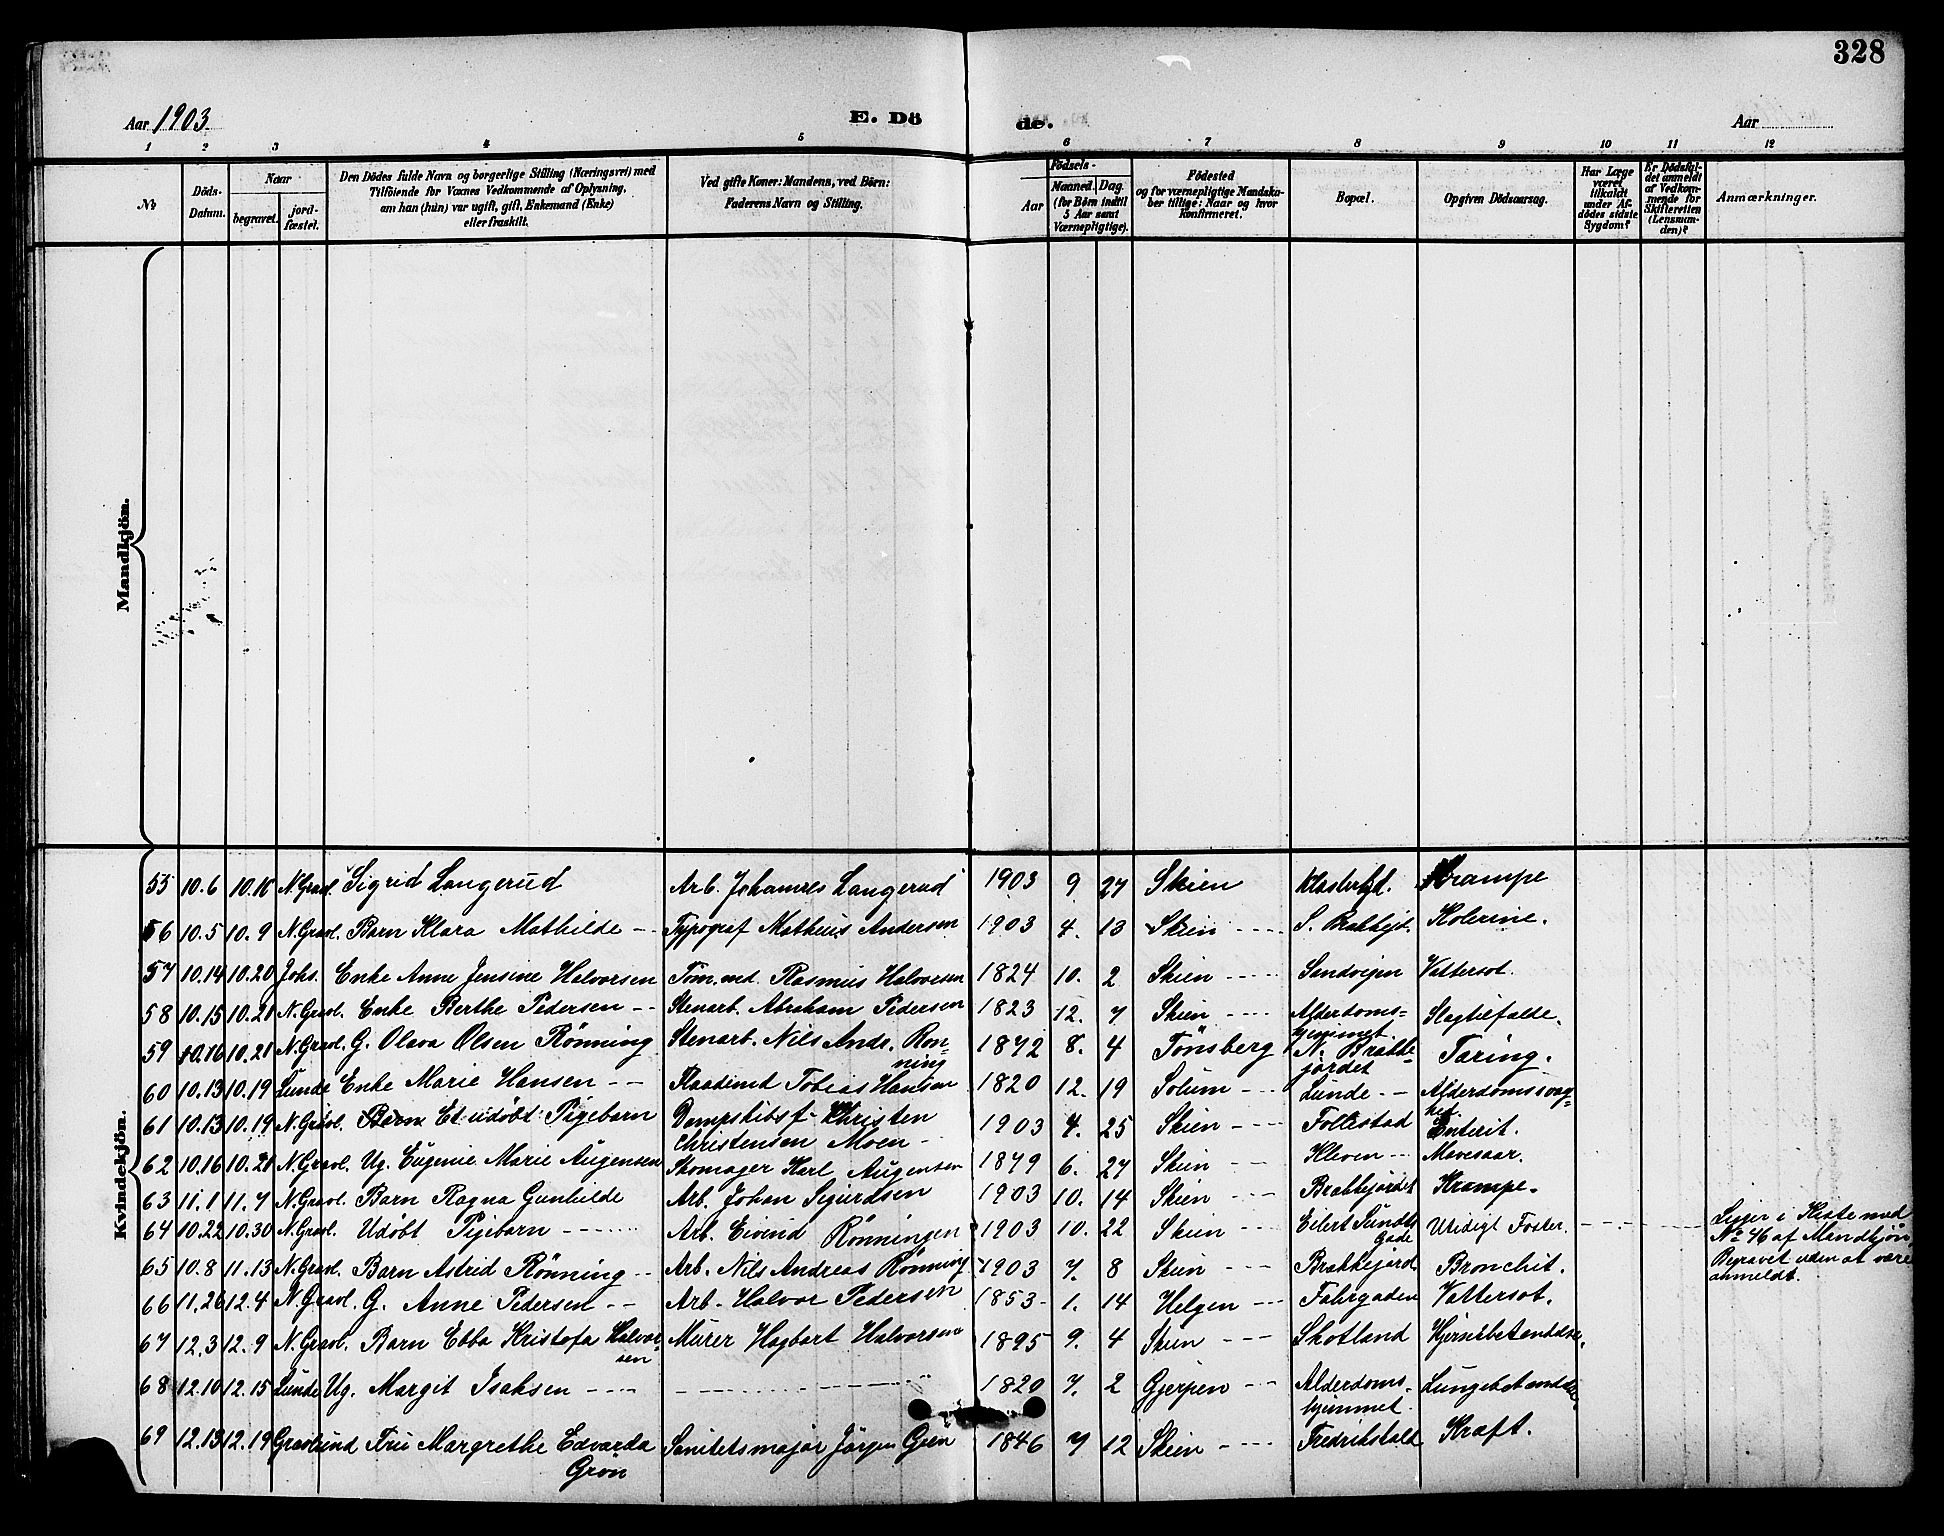 328
Aar 1903
E. Dö de.
Aar
1 2 3 4 5 6 7 8 9 10 11 12
No
Döds-Datum.
Naar
begravet.
jord-fæstet.
Den Dödes fulde Navn og borgerlige Stilling (Næringsvei) med
Tilföiende for Voxnes Vedkommende af Oplysning,
om han (hun) var ugift, gift, Enkemand (Enke)
eller fraskilt.
Ved gifte Koner: Mandens, ved Börn:
Faderens Navn og Stilling.
Födsels-
Aar
Maaned. Dag.
(for Börn indtil
5 Aar samt
Værnepligtige).
Födested
og for værnepligtige Mandska-
ber tillige: Naar og hvor
Konfirmeret.
Bopæl.
Opgiven Dödsaarsag.
Har Læge
været
tilkaldt
under Af-
dödes sidste
Sygdom?
Er Dödsfal-
det anmeldt
af Vedkom-
mende for
Skifteretten
(Lensman-
den)?
Anmærkninger.
Mandkjön.
Kvindekjön.
55 10.6 10.10 N. Gravl. Sigrid Langerud Arb. Johannes Langerud 1903 9 27 Skien Klosterfgt. Krampe
56 10.5 10.9 N. Gravl. Barn Klara Mathilde -- Typograf Matheus Andersen 1903 4. 13 Skien ---- S. Brakkejd. Kolerine.
57 10.14 10.20 Johs. Enke Anne Jensine Halvorsen Töm.md. Rasmus Halvorsen 1824 10. 2 Skien ---- Sandvigen Vattersot.
58 10.15 10.21 N. Gravl. Enke Berthe Pedersen -- Stenarb. Abraham Pedersen 1823 12. 7 Skien ---- Alderdoms-
hjemmet Slagtilfælde.
59 10.16 10.21 N. Gravl. G. Olava Olsen Rönning Stenarb. Nils Andr. Rön-
ning 1872 8. 4 Tönsberg N. Brakke-
jordet Tæring.
60 10.13 10.19 Lunde Enke Marie Hansen -- Raadmd Tobias Hansen 1820 12. 19 Solum --- Lunde -- Alderdomssvag-
hed.
61 10.13 10.19 N. Gravl. Barn Et udöbt Pigebarn Dampskibsf. Christen
Christensen Moen - 1903 4. 25 Skien --- Follestad Enterit.
62 10.16 10.21 N. Gravl. Ug. Eugenie Marie Augensen Skomager Karl Augensen 1879 6. 27 Skien -- Kleven --- Mavesaar.
63 11.1 11.7 N. Gravl. Barn Ragna Gunhilde Arb. Johan Sigurdsen 1903 10. 14 Skien -- Brakkejordet Krampe.
64 10.22 10.30 N. Gravl. Udöbt Pigebarn ------ Arb. Eivind Rönningen 1903 10. 22 Skien -- Eilert Sundts
Gade Utidigt Foster. Ligger i Kiste med
No 46 af Mandkjön
65 10.8 11.13 N. Gravl. Barn Astrid Rönning -- Arb. Nils Andreas Rönning 1903 7. 8 Skien -- Brakkejord Bronchit. Begravet uden at være
anmeldt.
66 11.26 12.4 N. Gravl. G. Anne Pedersen -- Arb. Halvor Pedersen 1853 1. 14 Helgen --- Fahrgaden Vattersot.
67 12.3 12.9 N. Gravl. Barn Ebba Kristofa Halvor-
sen Murer Hagbart Halvorsen 1895 9. 4 Skien --- Skotland Hjernebetændelse.
68 12.10 12.15 Lunde Ug. Margit Isaksen ---- 1820 7. 2 Gjerpen -- Alderdoms-
hjemmet Lungebetændelse.
69 12.13 12.19 Gravlund Fru Margrethe Edvarda
Grön Sanitetsmajor Jörgen Grön 1846 7 12 Skien ---- Fredrikstald Kræft.